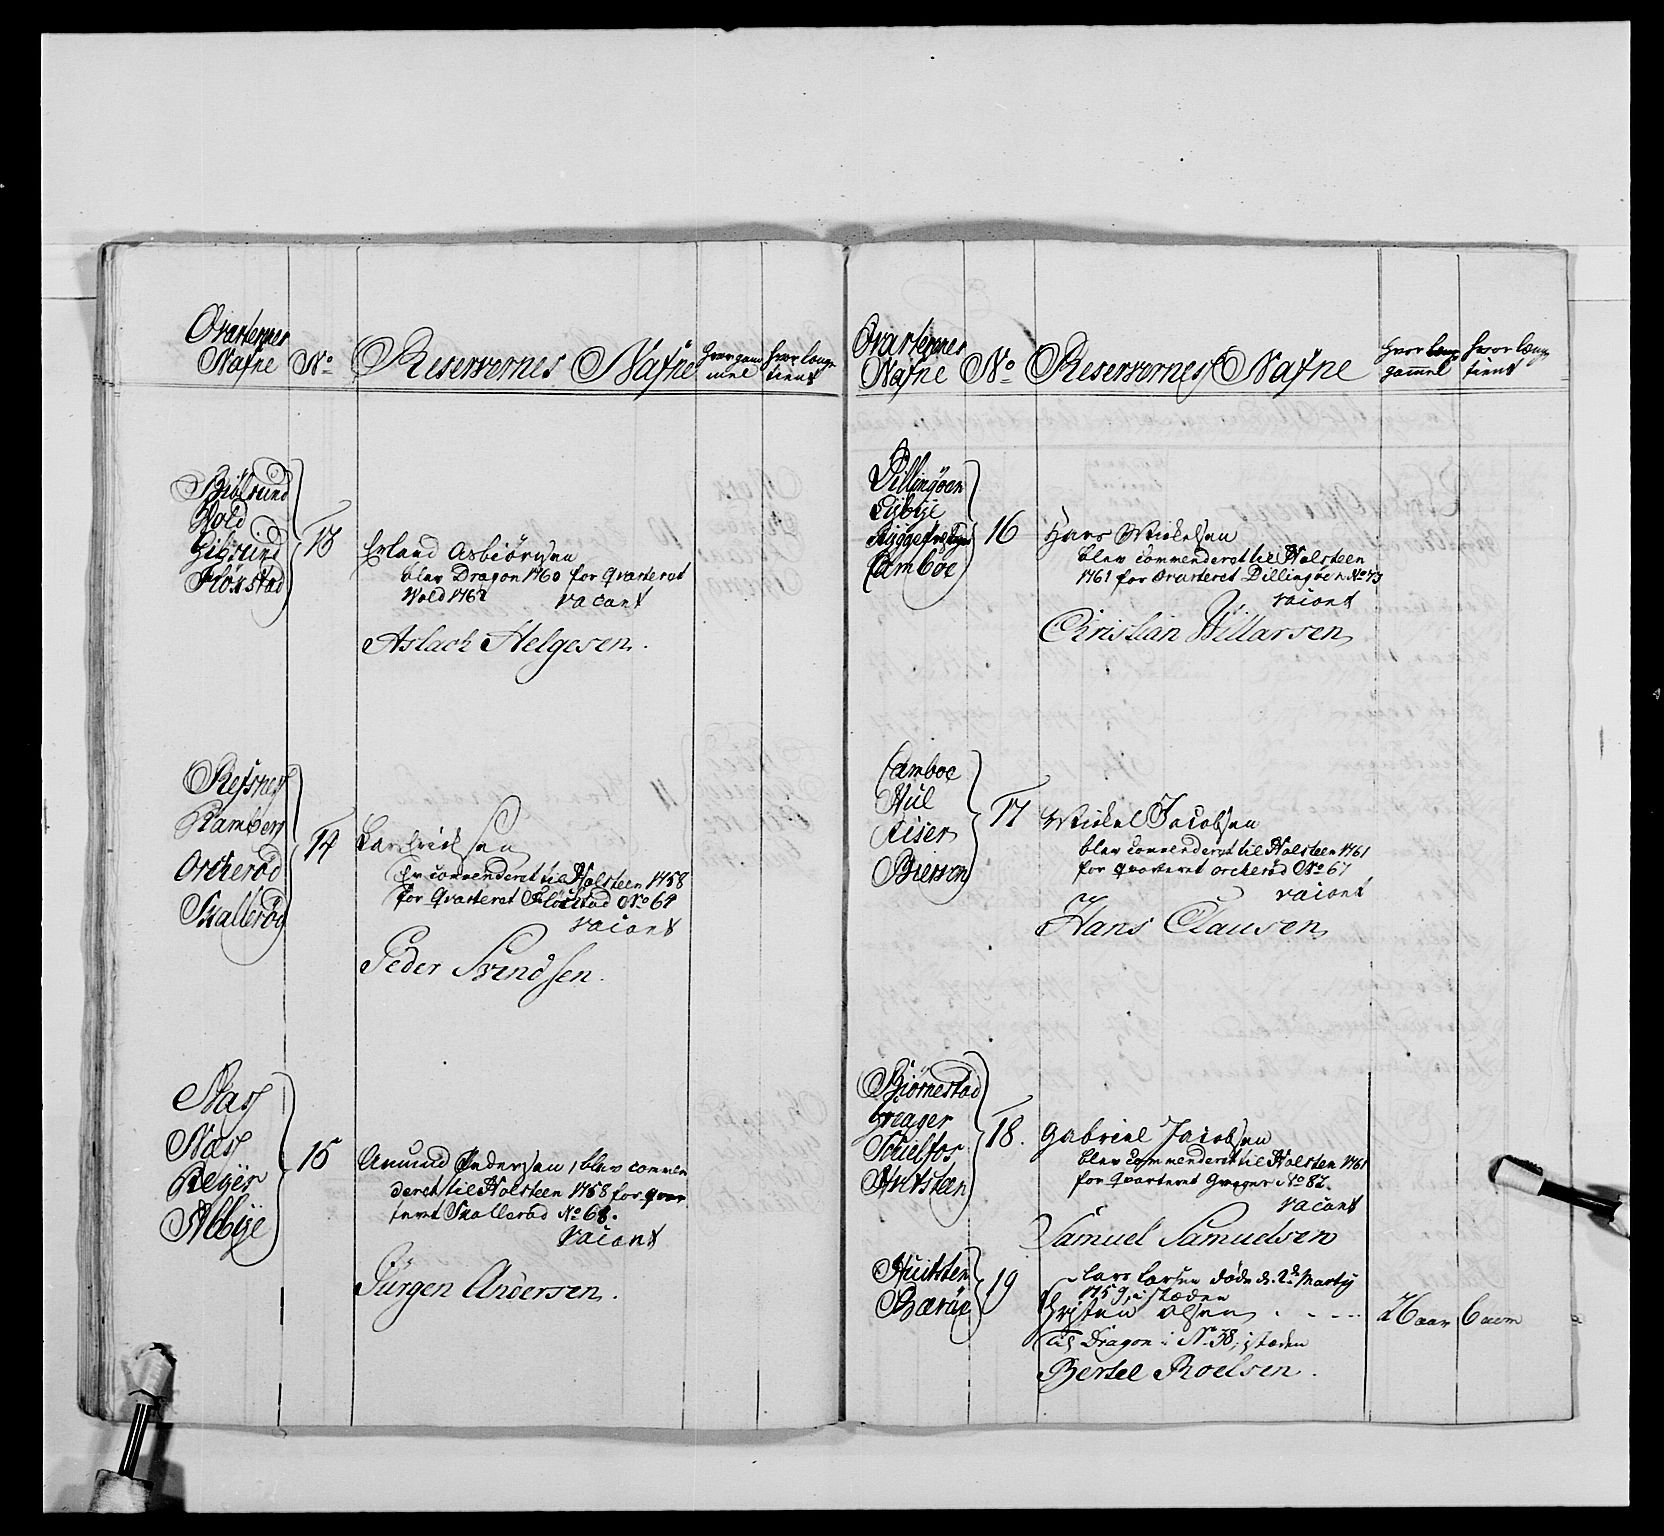 Qvarterernes Nafne
No
Reservernes Nafne
hvor gam
mel
hvor lenge
tient
Biölsund
Wold
Gibsund
Floxstad
13
Erland Asbiörnsen
blev Dragon 1760 for Qvarteret
Wold 1762
vacant
Aslach Helgesen.
Refsnes
Kambers
Orcherød
Skallerög
14
Lars Erichsen
Er commenderet til Holsteen 1758
for Qvarteret Flöxstad No 64
vacant
Peder Svendsen.
Nas
Nas
Reyer
Albye
15
Amund Pedersen, blev commen
deret til Holsteen 1758 for Qvar
teret Skallerød No 68.
vacant
Jürgen Andersen.
Qvarterernes
Nafne
No
Reservernes Nafne
hvor
gammel
hvor leng
tient
Dillingöen
Eskye
Camboe
16
Hans Michelsen
blev commenderet til Holsteen
1761 for Qvarteret Dillingöen No 73
vacant
Christian Willarsen
Camboe
Hul
Aiser
Brevon
17
Michel Jacobsen
blev commenderet til Holsteen 1761
for Qvarteret Orcherød No 67
vacant
Hans Clausen
Biørnestad
Greager
Schielfos
Hvitsteen
18.
Gabriel Jacobsen
blev commenderet til Holsteen 1761
for Qvarteret Greger No 82.
vacant
Samuel Samuelsen
Huitsten
Bæröe
19
Lars Larsen döde d. 2d Marty
1759, i stæden
Christen Olsen
26 aar
6 aar
Til Dragon i No 38, i stæden
Bertel Roelsen.